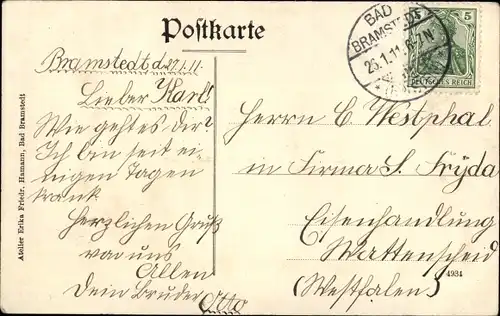 Postkarte
BAD
BRAMSTEDT
26.1.11.6-7N
5
DEUTSCHES REICH
Bramstedt d. 27.1.11.
Lieber Karl!
Wie geht es dir?
Ich bin seit ei-
nigen Tagen
krank.
Herzlichen Gruß
von uns
Allen
Dein Bruder Otto
Herrn C. Westphal
in Firma S. Fryda
Eisenhandlung
Wattenscheid
(Westfalen)
4934
Atelier Erika Friedr. Hamann, Bad Bramstedt